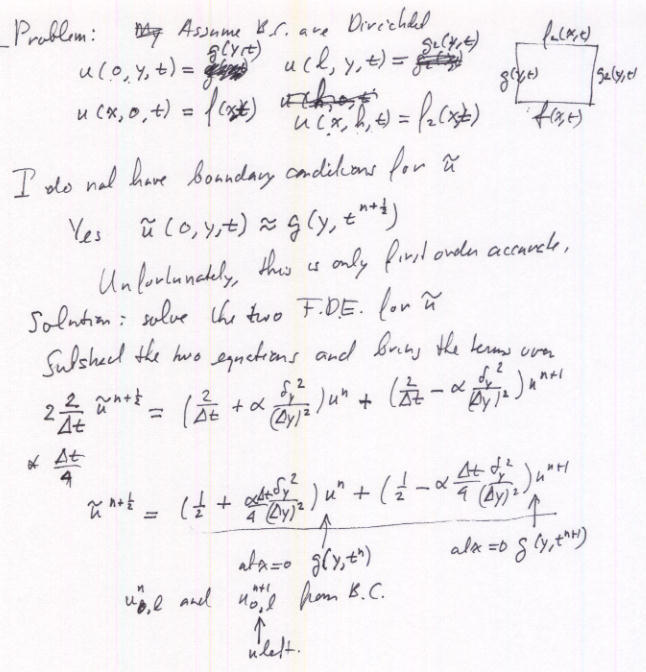 Problem: Assume B.C. are Dirichlet
u(0,y,t) = g(y,t) u(l,y,t) = g₂(y,t)
u(x,0,t) = f(x,t) u(x,h,t) = f₂(x,t)
f₂(x,t)
g(y,t) g₂(y,t)
f(x,t)
I do not have boundary conditions for ũ
Yes ũ(0,y,t) ≈ g(y,t^{n+½})
Unfortunately, this is only first order accurate.
Solution: solve the two F.D.E. for ũ
Subtract the two equations and bring the terms over
2 2/Δt ũ^{n+½} = (2/Δt + α δ_y²/(Δy)²) u^n + (2/Δt − α δ_y²/(Δy)²) u^{n+1}
× Δt/4
ũ^{n+½} = (½ + αΔt δ_y²/4(Δy)²) u^n + (½ − α Δt/4 δ_y²/(Δy)²) u^{n+1}
at x=0 g(y,t^n) at x=0 g(y,t^{n+1})
u^n_{0,l} and u^{n+1}_{0,l} from B.C.
uleft.